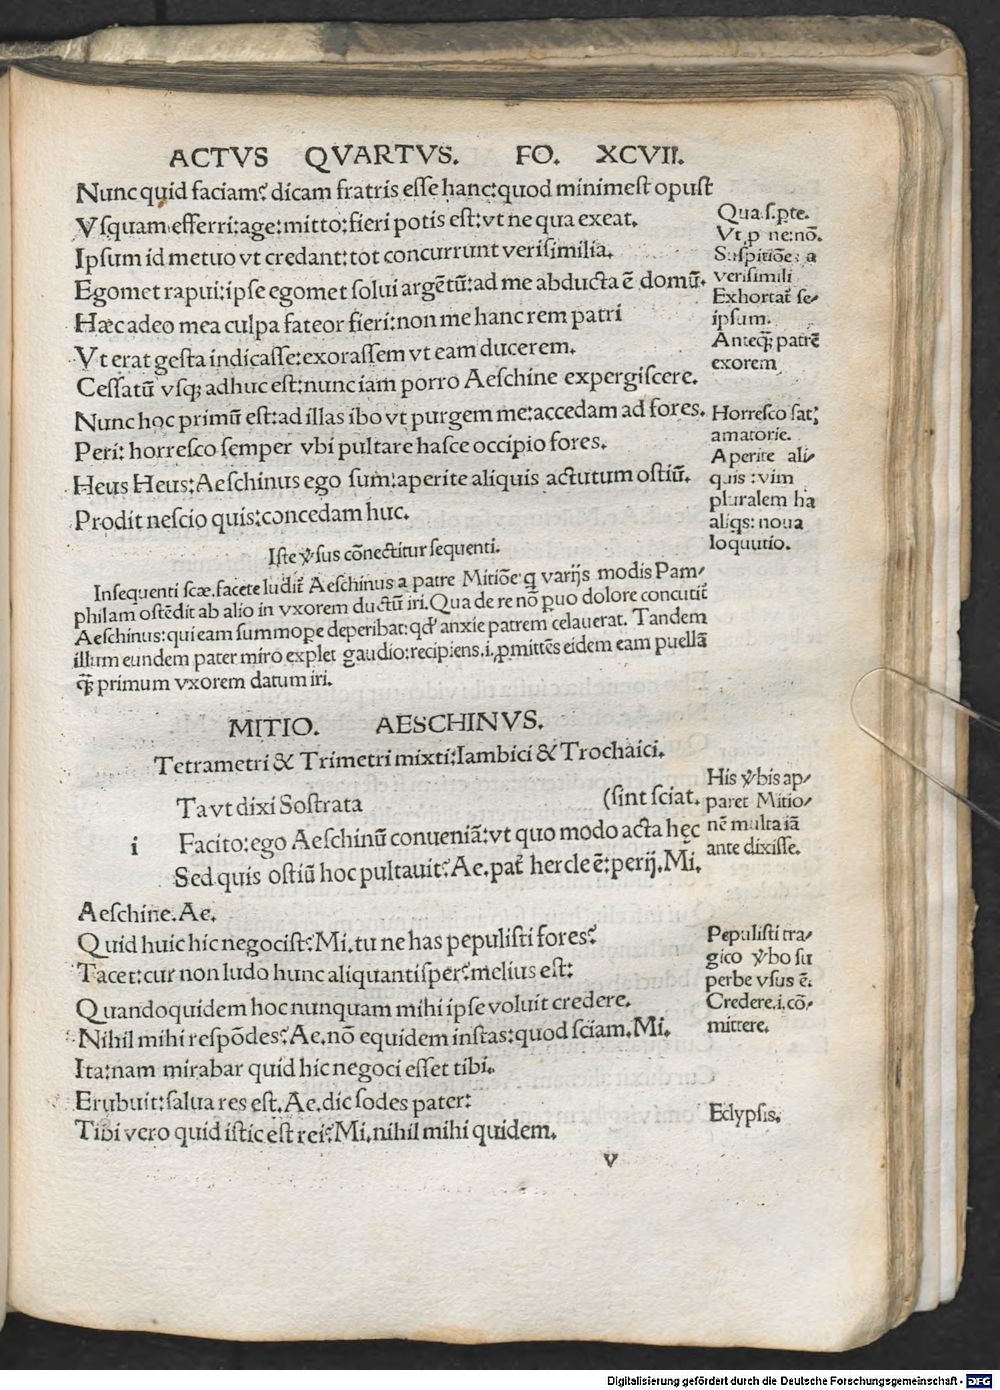 ACTVS QVARTVS. FO. XCVII.
Nunc quid faciam? dicam fratris esse hanc: quod minimest opust
Vsquam efferri: age: mitto: fieri potis est: vt ne qua exeat.
Ipsum id metuo vt credant: tot concurrunt verisimilia.
Egomet rapui: ipse egomet solui argētū: ad me abducta ē domū.
Hæc adeo mea culpa fateor fieri: non me hanc rem patri
Vt erat gesta indicasse: exorassem vt eam ducerem.
Cessatū vsq; adhuc est: nunc iam porro Aeschine expergiscere.
Nunc hoc primū est: ad illas ibo vt purgem me: accedam ad fores.
Peri: horresco semper vbi pultare hasce occipio fores.
Heus Heus: Aeschinus ego sum: aperite aliquis actutum ostiū.
Prodit nescio quis: concedam huc.
Qua. s. pte.
Vt p ne: nō.
Suspitiōe: a
verisimili
Exhortat̄ se/
ipsum.
Anteq̄ꝫ patrē
exorem
Horresco sat;
amatorie.
Aperite ali/
quis : vim
pluralem ha
aliqs: noua
loquutio.
Iste v̄sus cōnectitur sequenti.
In sequenti scæ. facete ludit̄ Aeschinus a patre Mitiōe: q varijs modis Pam/
philam ostēdit ab alio in vxorem ductū iri. Qua de re nō puo dolore concutit̄
Aeschinus: qui eam summope deperibat: qd' anxie patrem celauerat. Tandem
illum eundem pater miro explet gaudio: recipiens .i. pmittēs eidem eam puellā
q̄ꝫ primum vxorem datum iri.
MITIO. AESCHINVS.
Tetrametri & Trimetri mixti: Iambici & Trochaici.
Ta vt dixi Sostrata (sint sciat.
i Facito: ego Aeschinū conueniā: vt quo modo acta hęc
Sed quis ostiū hoc pultauit? Ae. pat̄ hercle ē: perij. Mi.
Aeschine. Ae.
Quid huic hic negocist? Mi. tu ne has pepulisti fores?
Tacet: cur non ludo hunc aliquantisper? melius est:
Quandoquidem hoc nunquam mihi ipse voluit credere.
Nihil mihi respōdes? Ae. nō equidem instas: quod sciam. Mi.
Ita: nam mirabar quid hic negoci esset tibi.
Erubuit: salua res est. Ae. dic sodes pater:
Tibi vero quid istic est rei? Mi. nihil mihi quidem.
His v̄bis ap/
paret Mitio/
nē multa iā
ante dixisse.
Pepulisti tra/
gico v̄bo su
perbe vsus ē.
Credere. i. cō/
mittere.
Eclypsis.
v
Digitalisierung gefördert durch die Deutsche Forschungsgemeinschaft - DFG